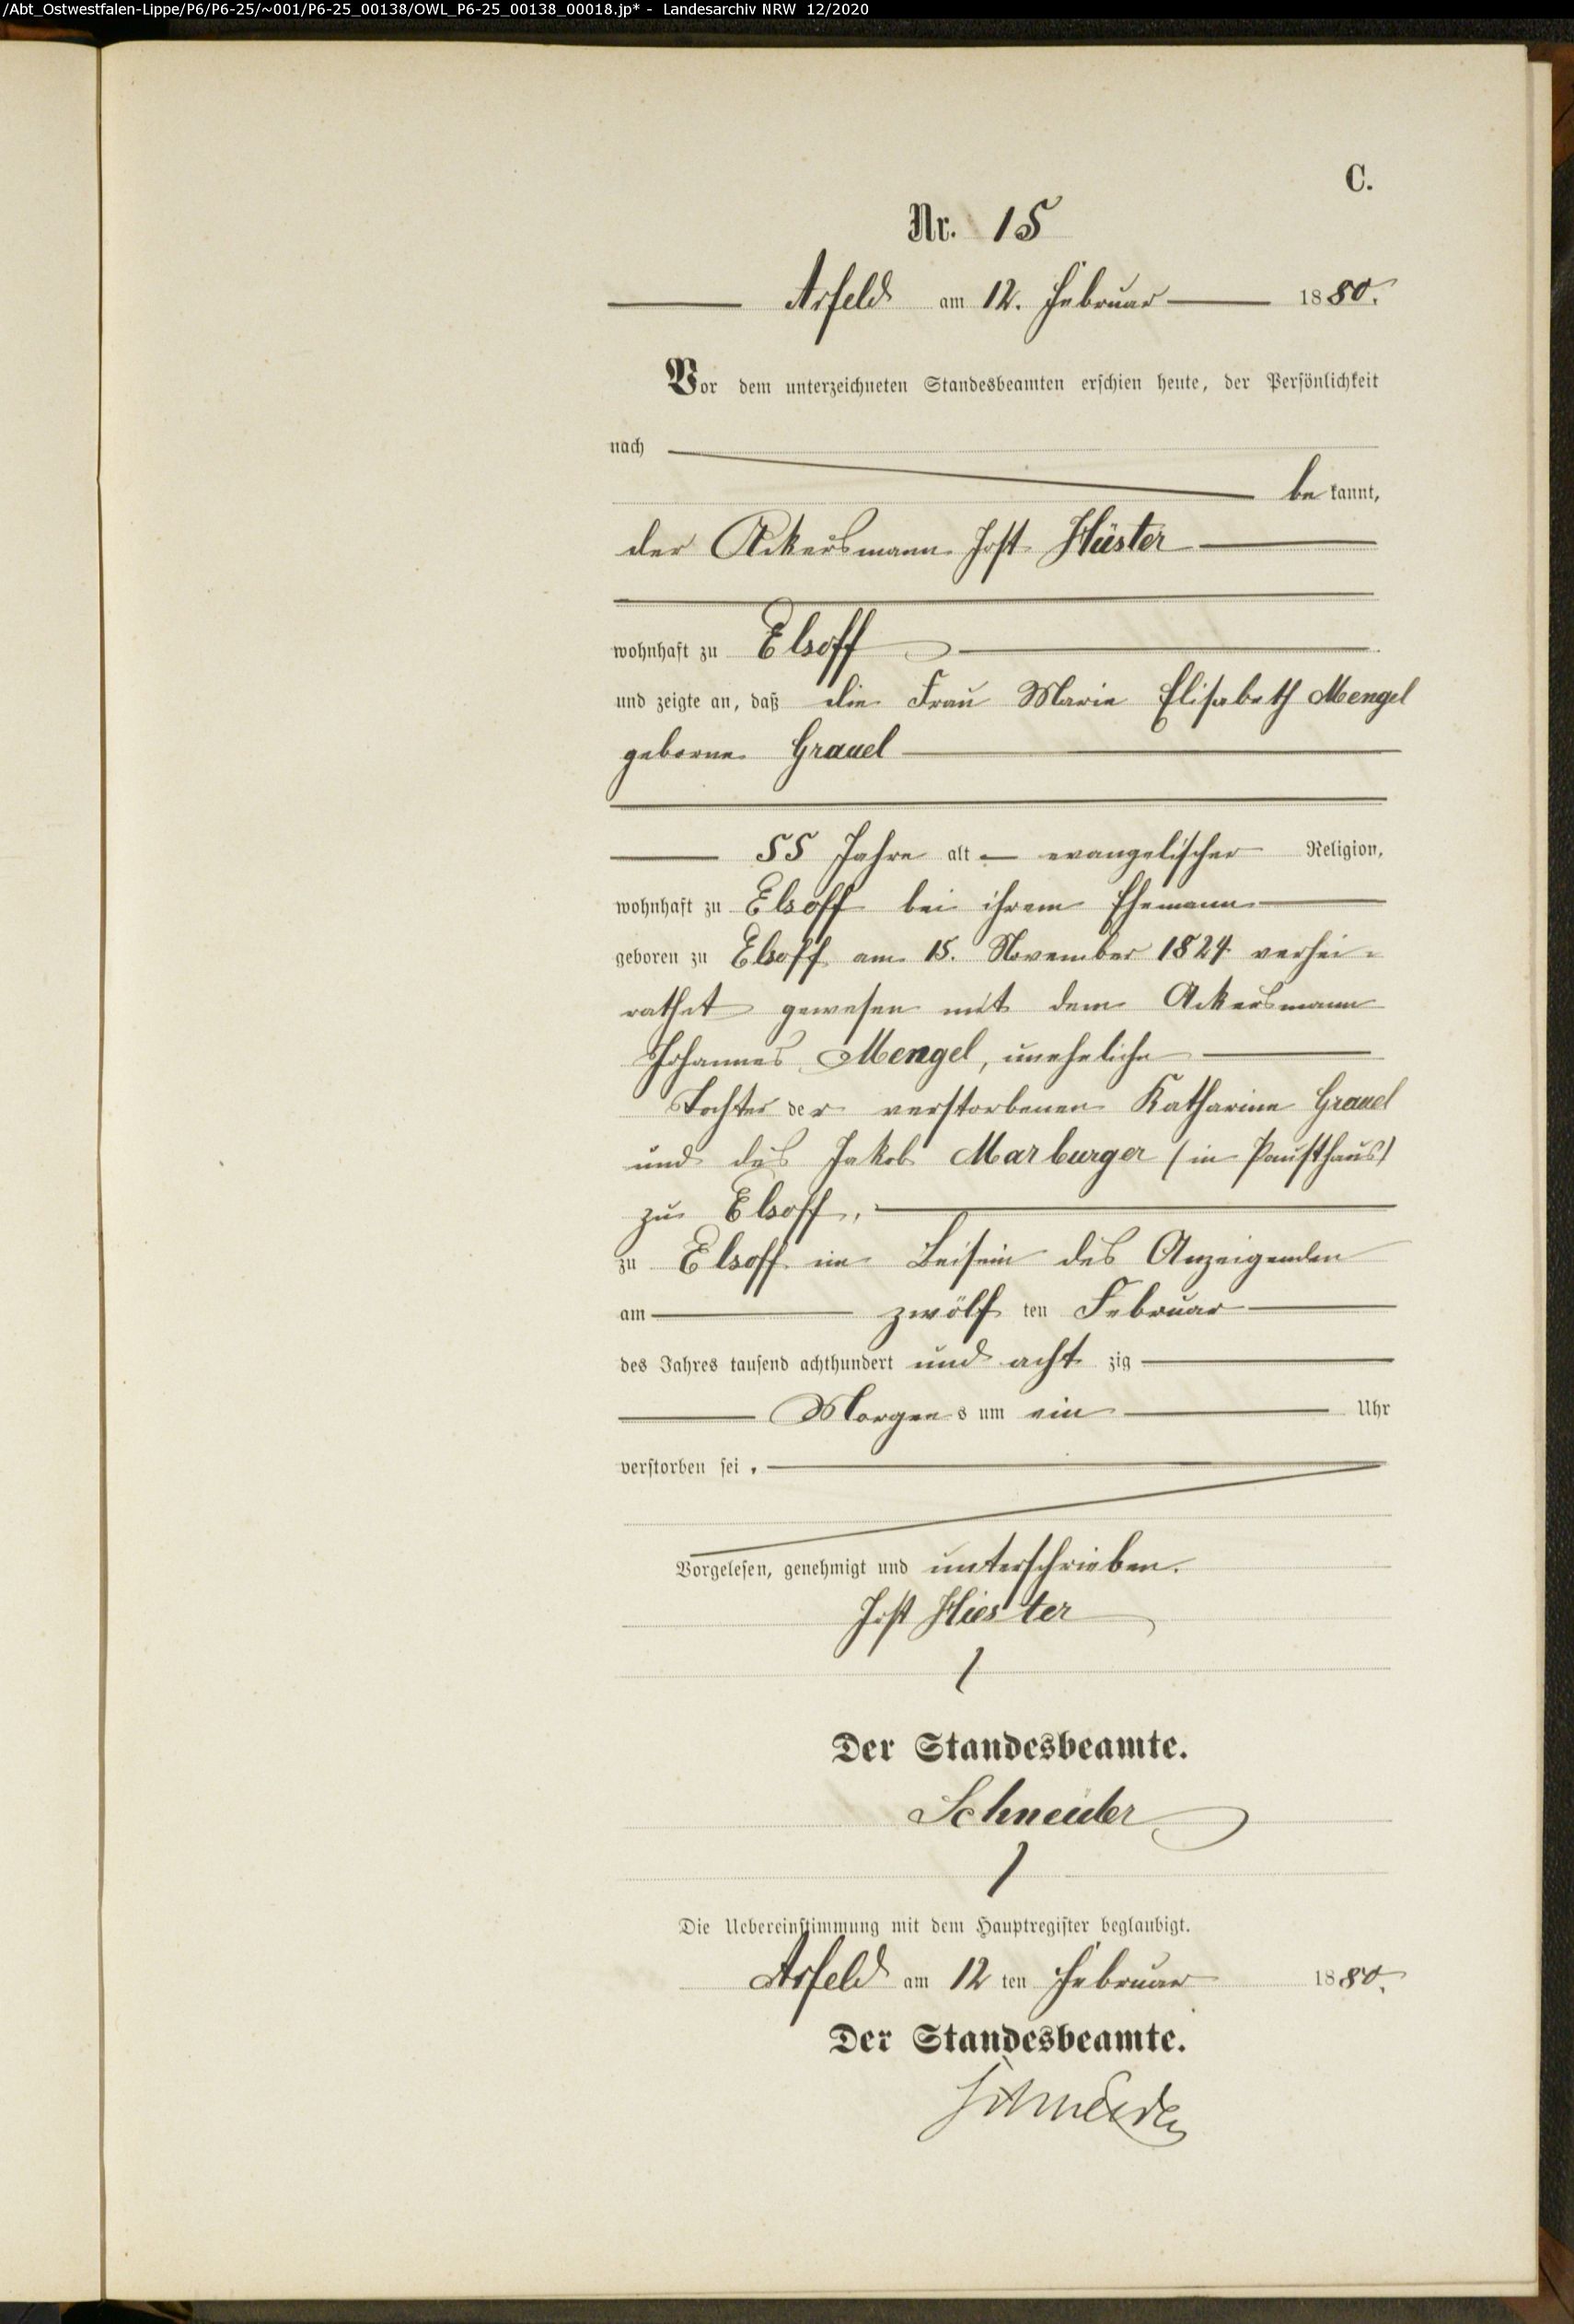 /Abt_Ostwestfalen-Lippe/P6/P6-25/~001/P6-25_00138/OWL_P6-25_00138_00018.jp* - Landesarchiv NRW 12/2020
C.
Nr. 15
Arfeld am 12. Februar 1880.
Vor dem unterzeichneten Standesbeamten erschien heute, der Persönlichkeit
nach
bekannt,
der Ackersmann Jost Hüster
wohnhaft zu Elsoff
und zeigte an, daß die Frau Marie Elisabeth Mengel
geborne Grauel
55 Jahre alt evangelischer Religion,
wohnhaft zu Elsoff bei ihrem Ehemann
geboren zu Elsoff am 15. November 1824 verhei-
rathet gewesen mit dem Ackersmann
Johannes Mengel, uneheliche
Tochter der verstorbenen Katharine Grauel
und des Jakob Marburger (in Pausthaus)
zu Elsoff,
zu Elsoff im Beisein des Anzeigenden
am zwölften Februar
des Jahres tausend achthundert und achtzig
Morgens um ein Uhr
verstorben sei.
Vorgelesen, genehmigt und unterschrieben.
Jost Hiester
Der Standesbeamte.
Schneider
Die Uebereinstimmung mit dem Hauptregister beglaubigt.
Arfeld am 12ten Februar 1880.
Der Standesbeamte.
Schneider